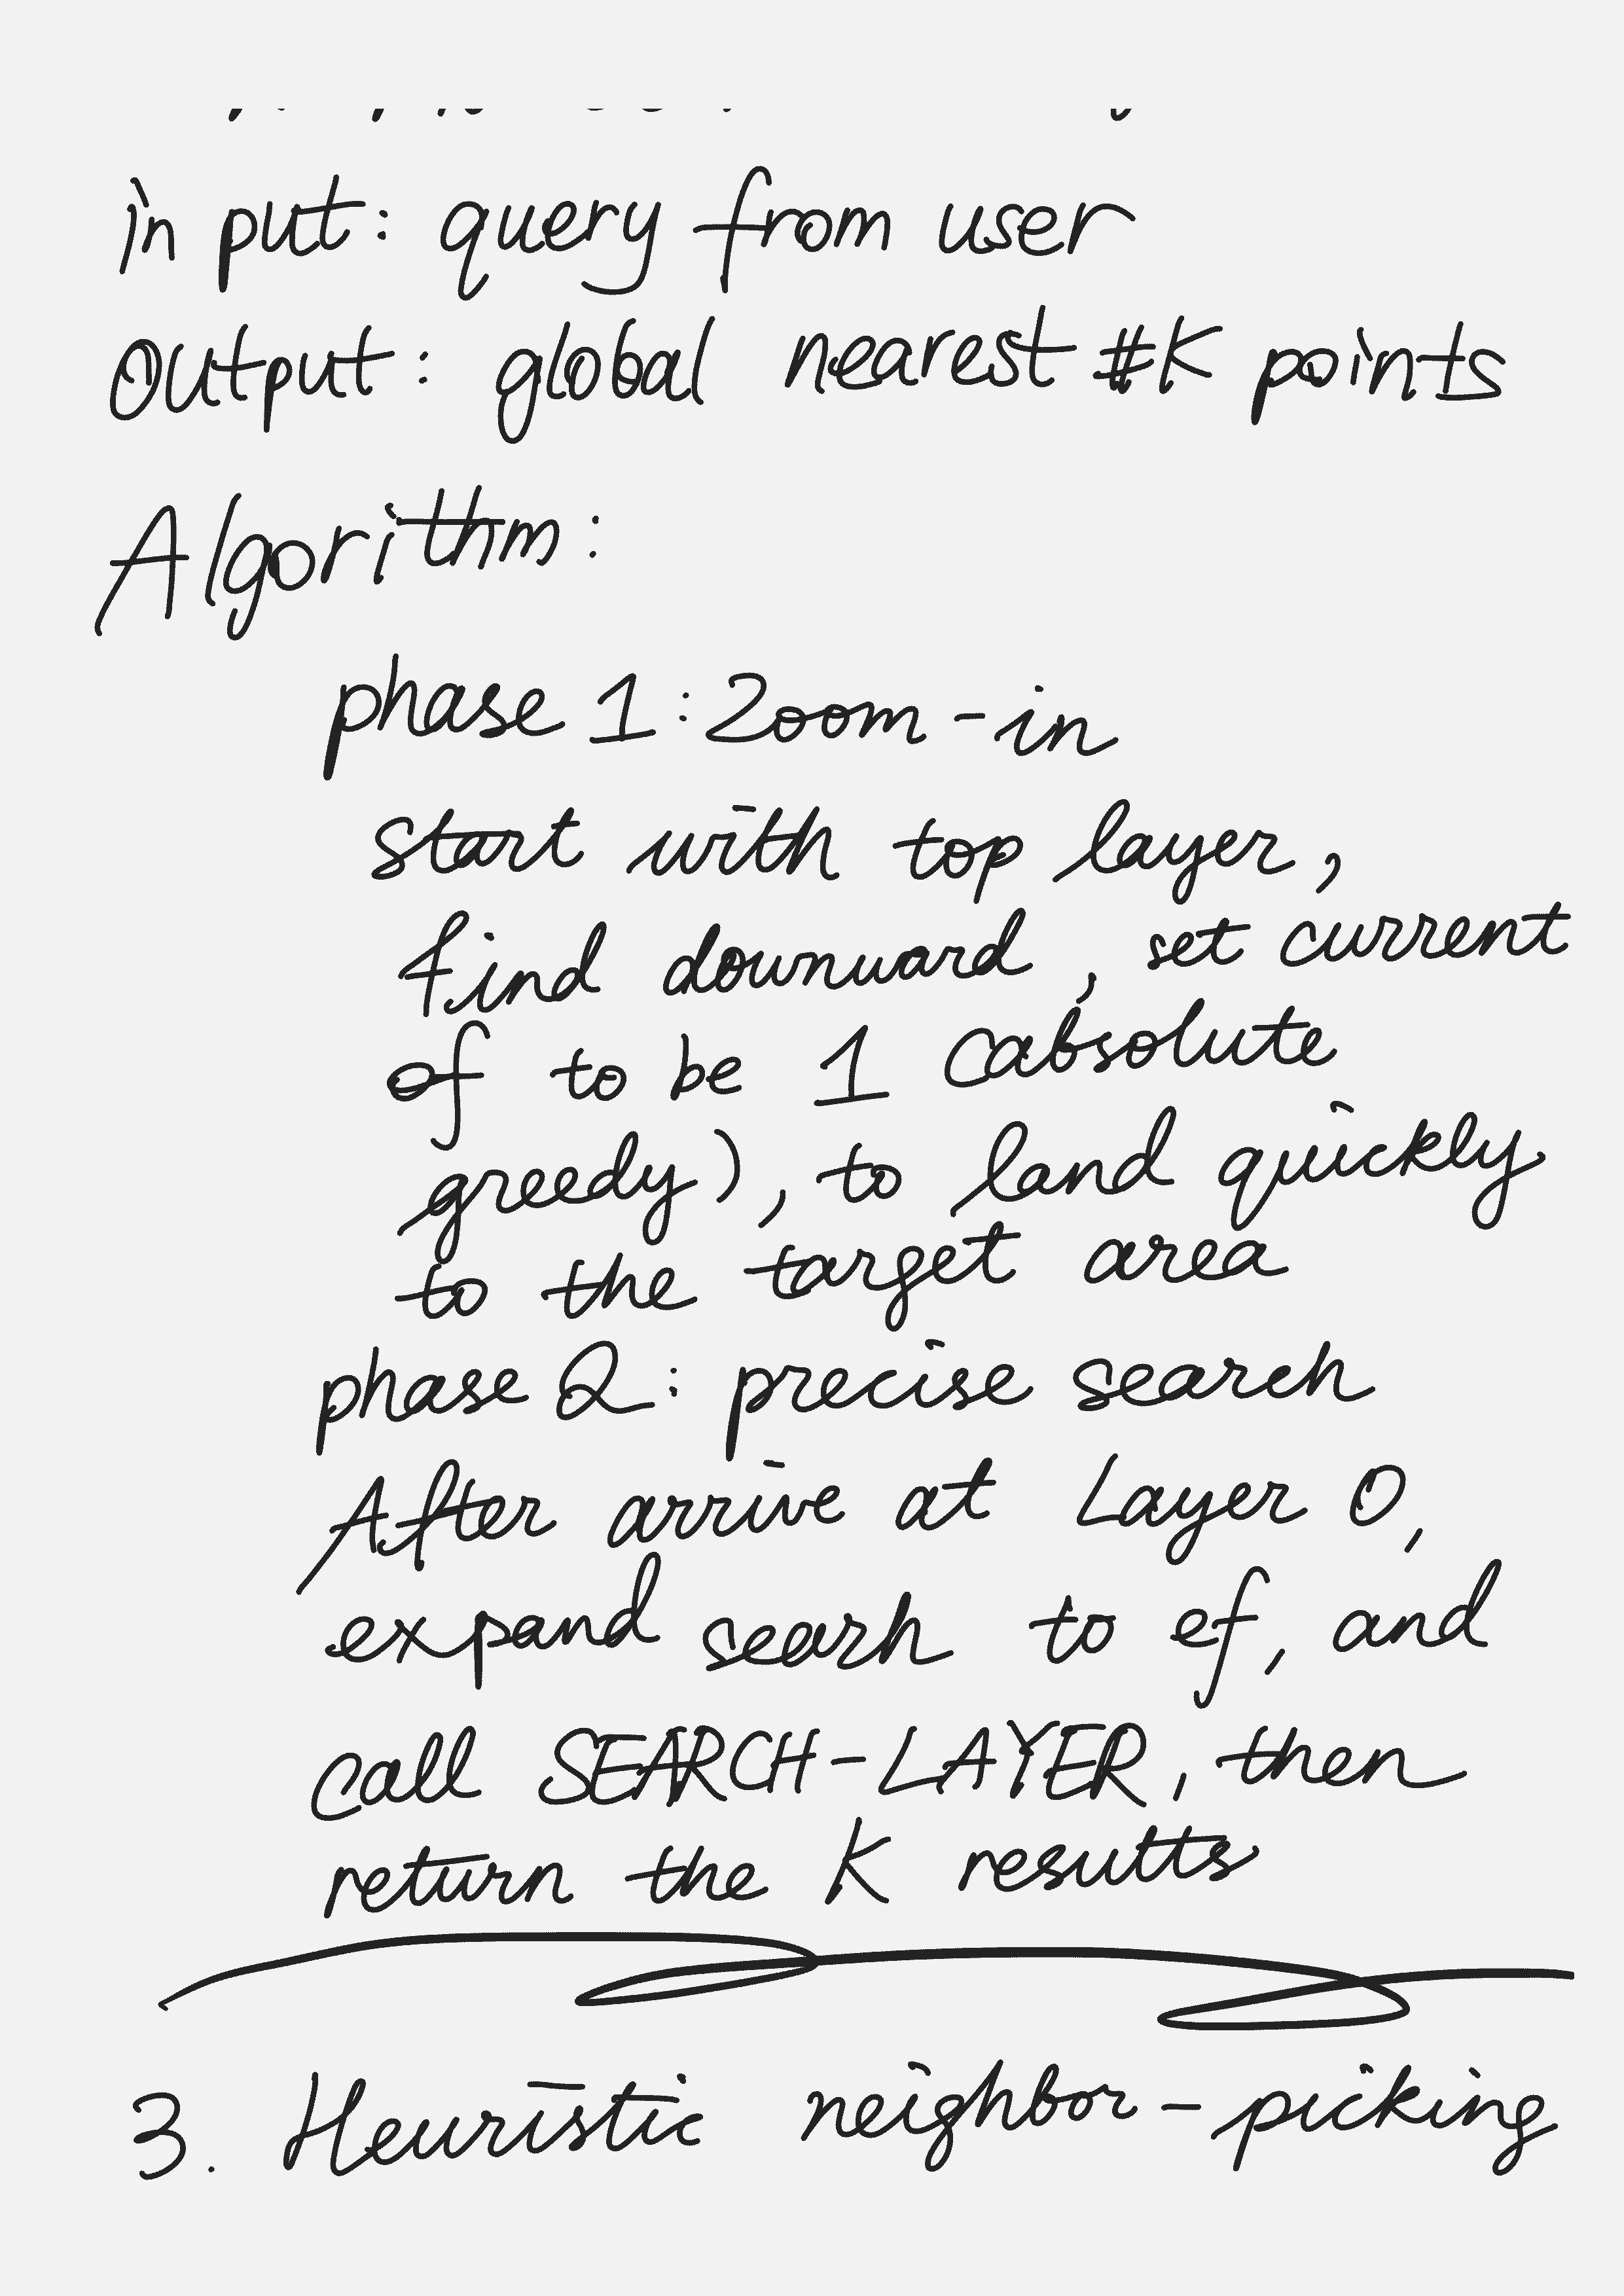 input: query from user
Output: global nearest #K points
Algorithm:
phase 1: Zoom-in
start with top layer,
find downward, set current
ef to be 1 (absolute
greedy), to land quickly
to the target area
phase 2: precise search
After arrive at Layer 0,
expand searh to ef, and
call SEARCH-LAYER, then
return the K results
3. Heuristic neighbor-picking